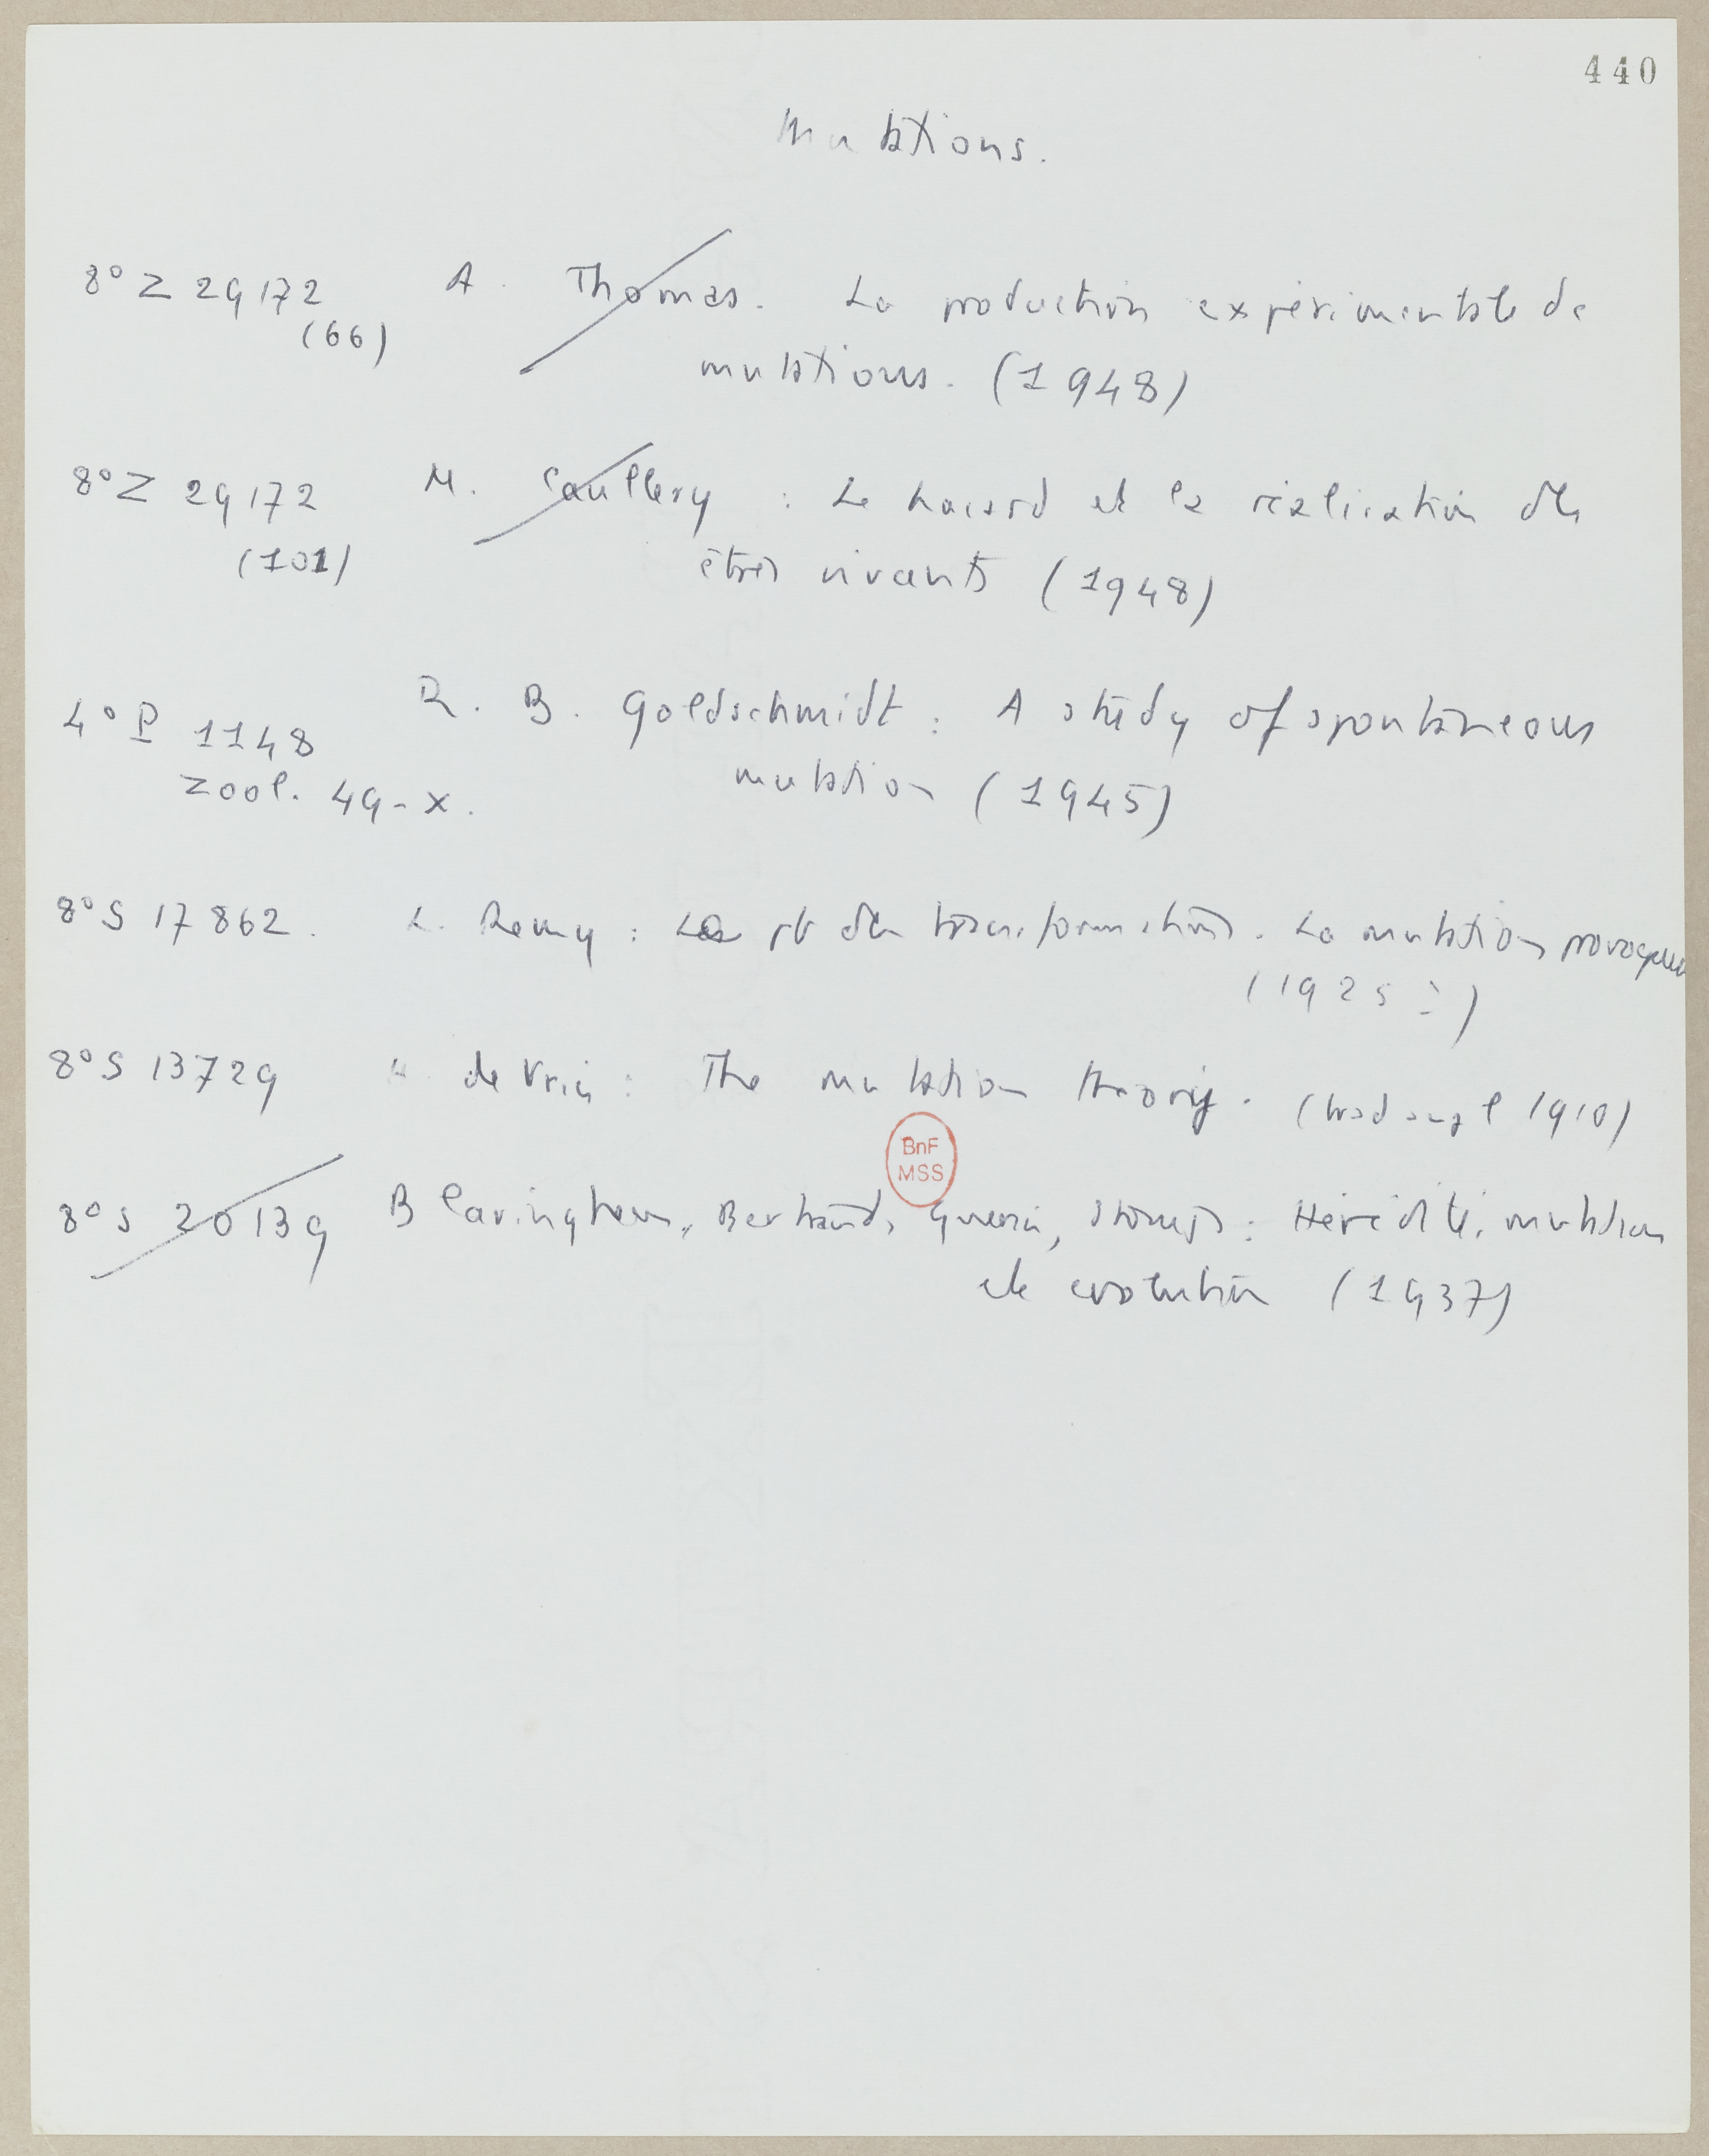 440
Mutations.
8° Z 29172 A. Thomas. La production expérimentale de
(66) mutations. (1948)
8° Z 29172 M. Caullery : Le hasard et la réalisation des
(101) êtres vivants (1948)
R. B. Goldschmidt : A study of spontaneous
4° P 1148 mutation (1945)
Zool. 49-X.
8° S 17862. L. Remy : Le pb des transformations. La mutation
(1925 )
8° S 13729 H. de Vries : The mutation theory. (trad angl 1910)
BnF
MSS
8° S 20139 Blaringhem, Bertrand, Guerin, Stomps : Hérédité, mutation
et evolution (1937)